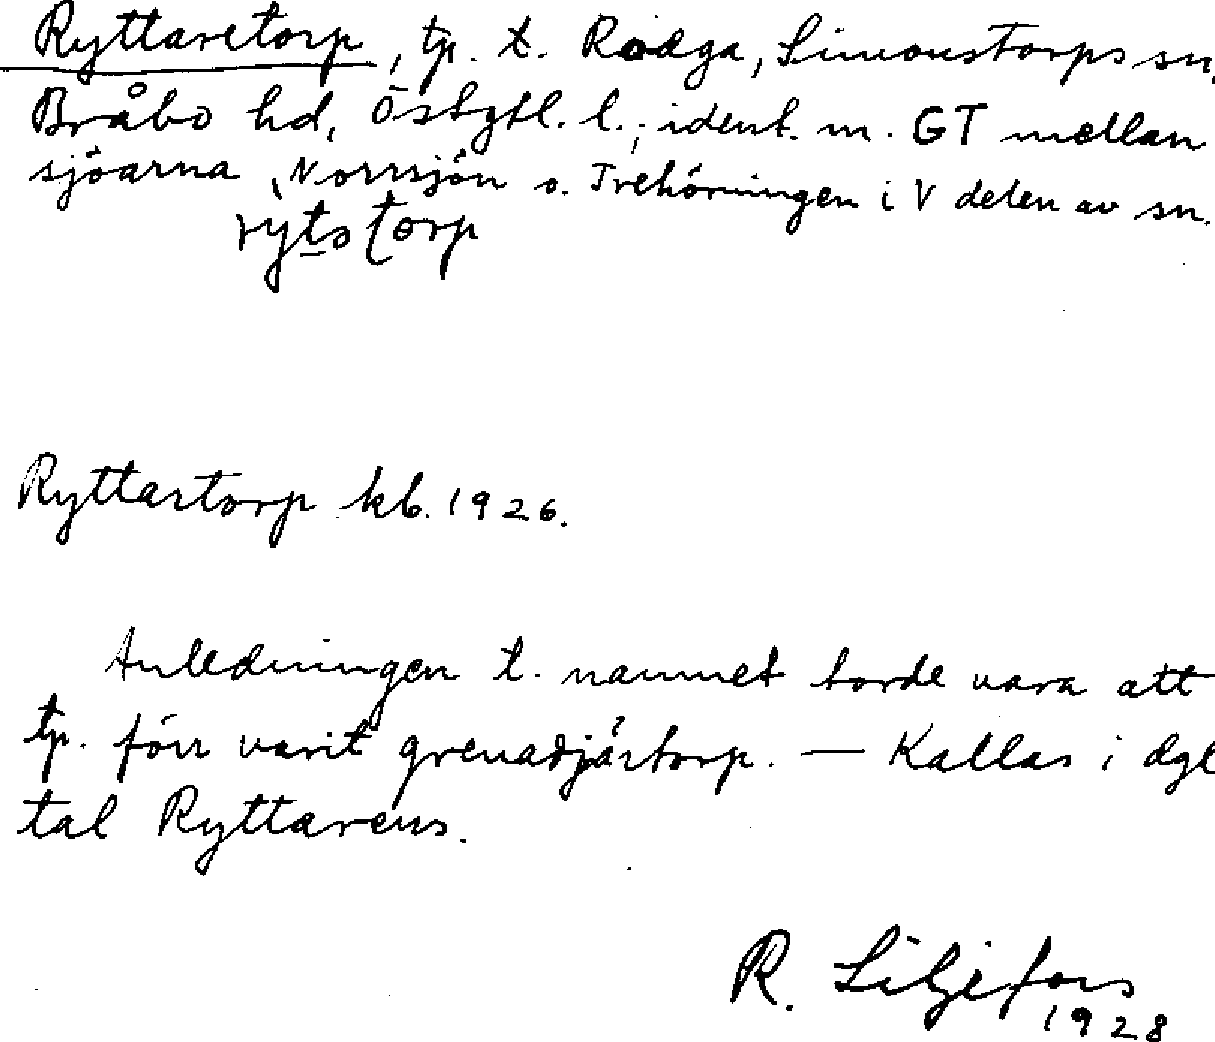 Ryttaretorp, tp. t. Rodga, Simonstorps sn,
Bråbo hd, Östgtl. l.; ident. m. GT mellan
sjöarna Norrsjön o. Trehörningen i V delen av sn.
Ryttartorp kb. 1926.
Anledningen t. namnet torde vara att
tp. förr varit grenadjärtorp. — Kallas i dgl
tal Ryttarens.
R. Liljefors
1928